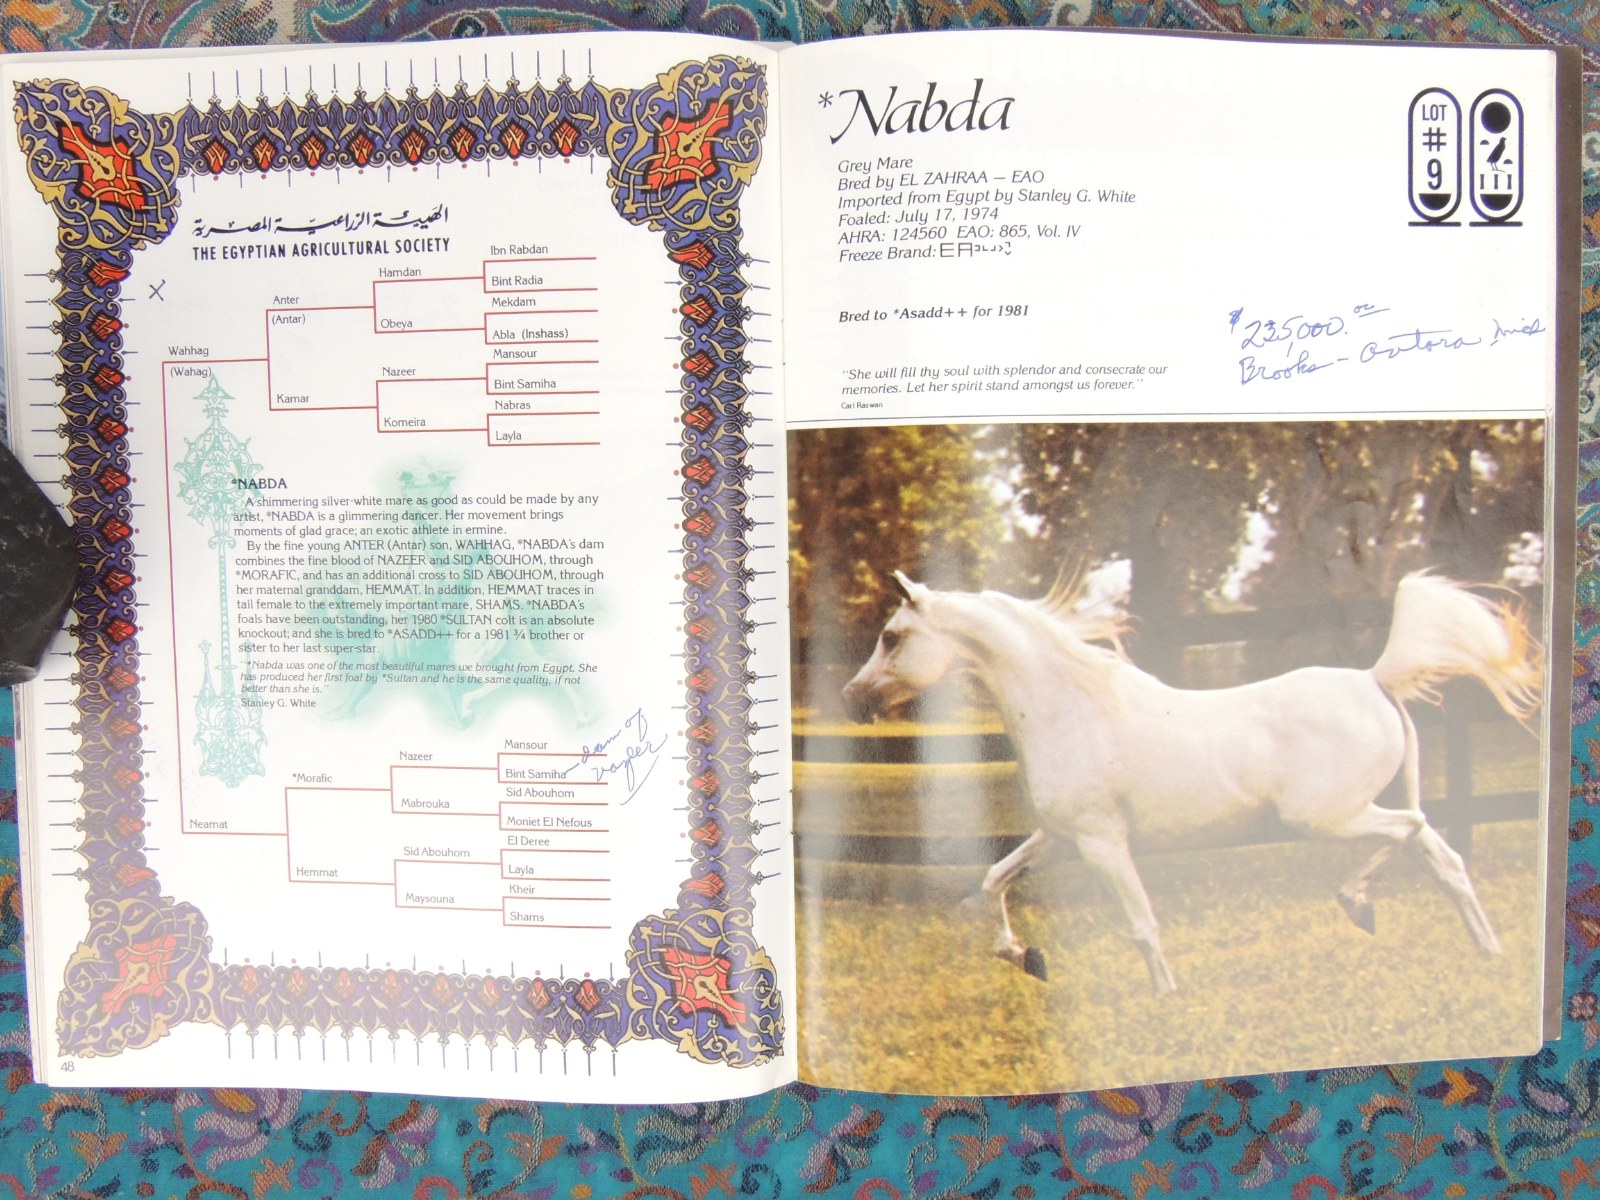 الهيئة الزراعية المصرية
THE EGYPTIAN AGRICULTURAL SOCIETY
X
Wahhag
(Wahag)
Anter
(Antar)
Kamar
Hamdan
Obeya
Nazeer
Komeira
Ibn Rabdan
Bint Radia
Mekdam
Abla (Inshass)
Mansour
Bint Samiha
Nabras
Layla
*NABDA
A shimmering silver-white mare as good as could be made by any
artist, *NABDA is a glimmering dancer. Her movement brings
moments of glad grace; an exotic athlete in ermine.
By the fine young ANTER (Antar) son, WAHHAG, *NABDA's dam
combines the fine blood of NAZEER and SID ABOUHOM, through
*MORAFIC, and has an additional cross to SID ABOUHOM, through
her maternal granddam, HEMMAT. In addition, HEMMAT traces in
tail female to the extremely important mare, SHAMS. *NABDA's
foals have been outstanding, her 1980 *SULTAN colt is an absolute
knockout; and she is bred to *ASADD++ for a 1981 ¾ brother or
sister to her last super-star.
"*Nabda was one of the most beautiful mares we brought from Egypt. She
has produced her first foal by *Sultan and he is the same quality, if not
better than she is."
Stanley G. White
Neamat
*Morafic
Hemmat
Nazeer
Mabrouka
Sid Abouhom
Maysouna
Mansour
Bint Samiha
dam of
Sid Abouhom
Moniet El Nefous
El Deree
Layla
Kheir
Shams
48
*Nabda
LOT
#
9
Grey Mare
Bred by EL ZAHRAA — EAO
Imported from Egypt by Stanley G. White
Foaled: July 17, 1974
AHRA: 124560 EAO: 865, Vol. IV
Freeze Brand:
Bred to *Asadd++ for 1981
$235,000.00
Brooks -
"She will fill thy soul with splendor and consecrate our
memories. Let her spirit stand amongst us forever."
Carl Raswan